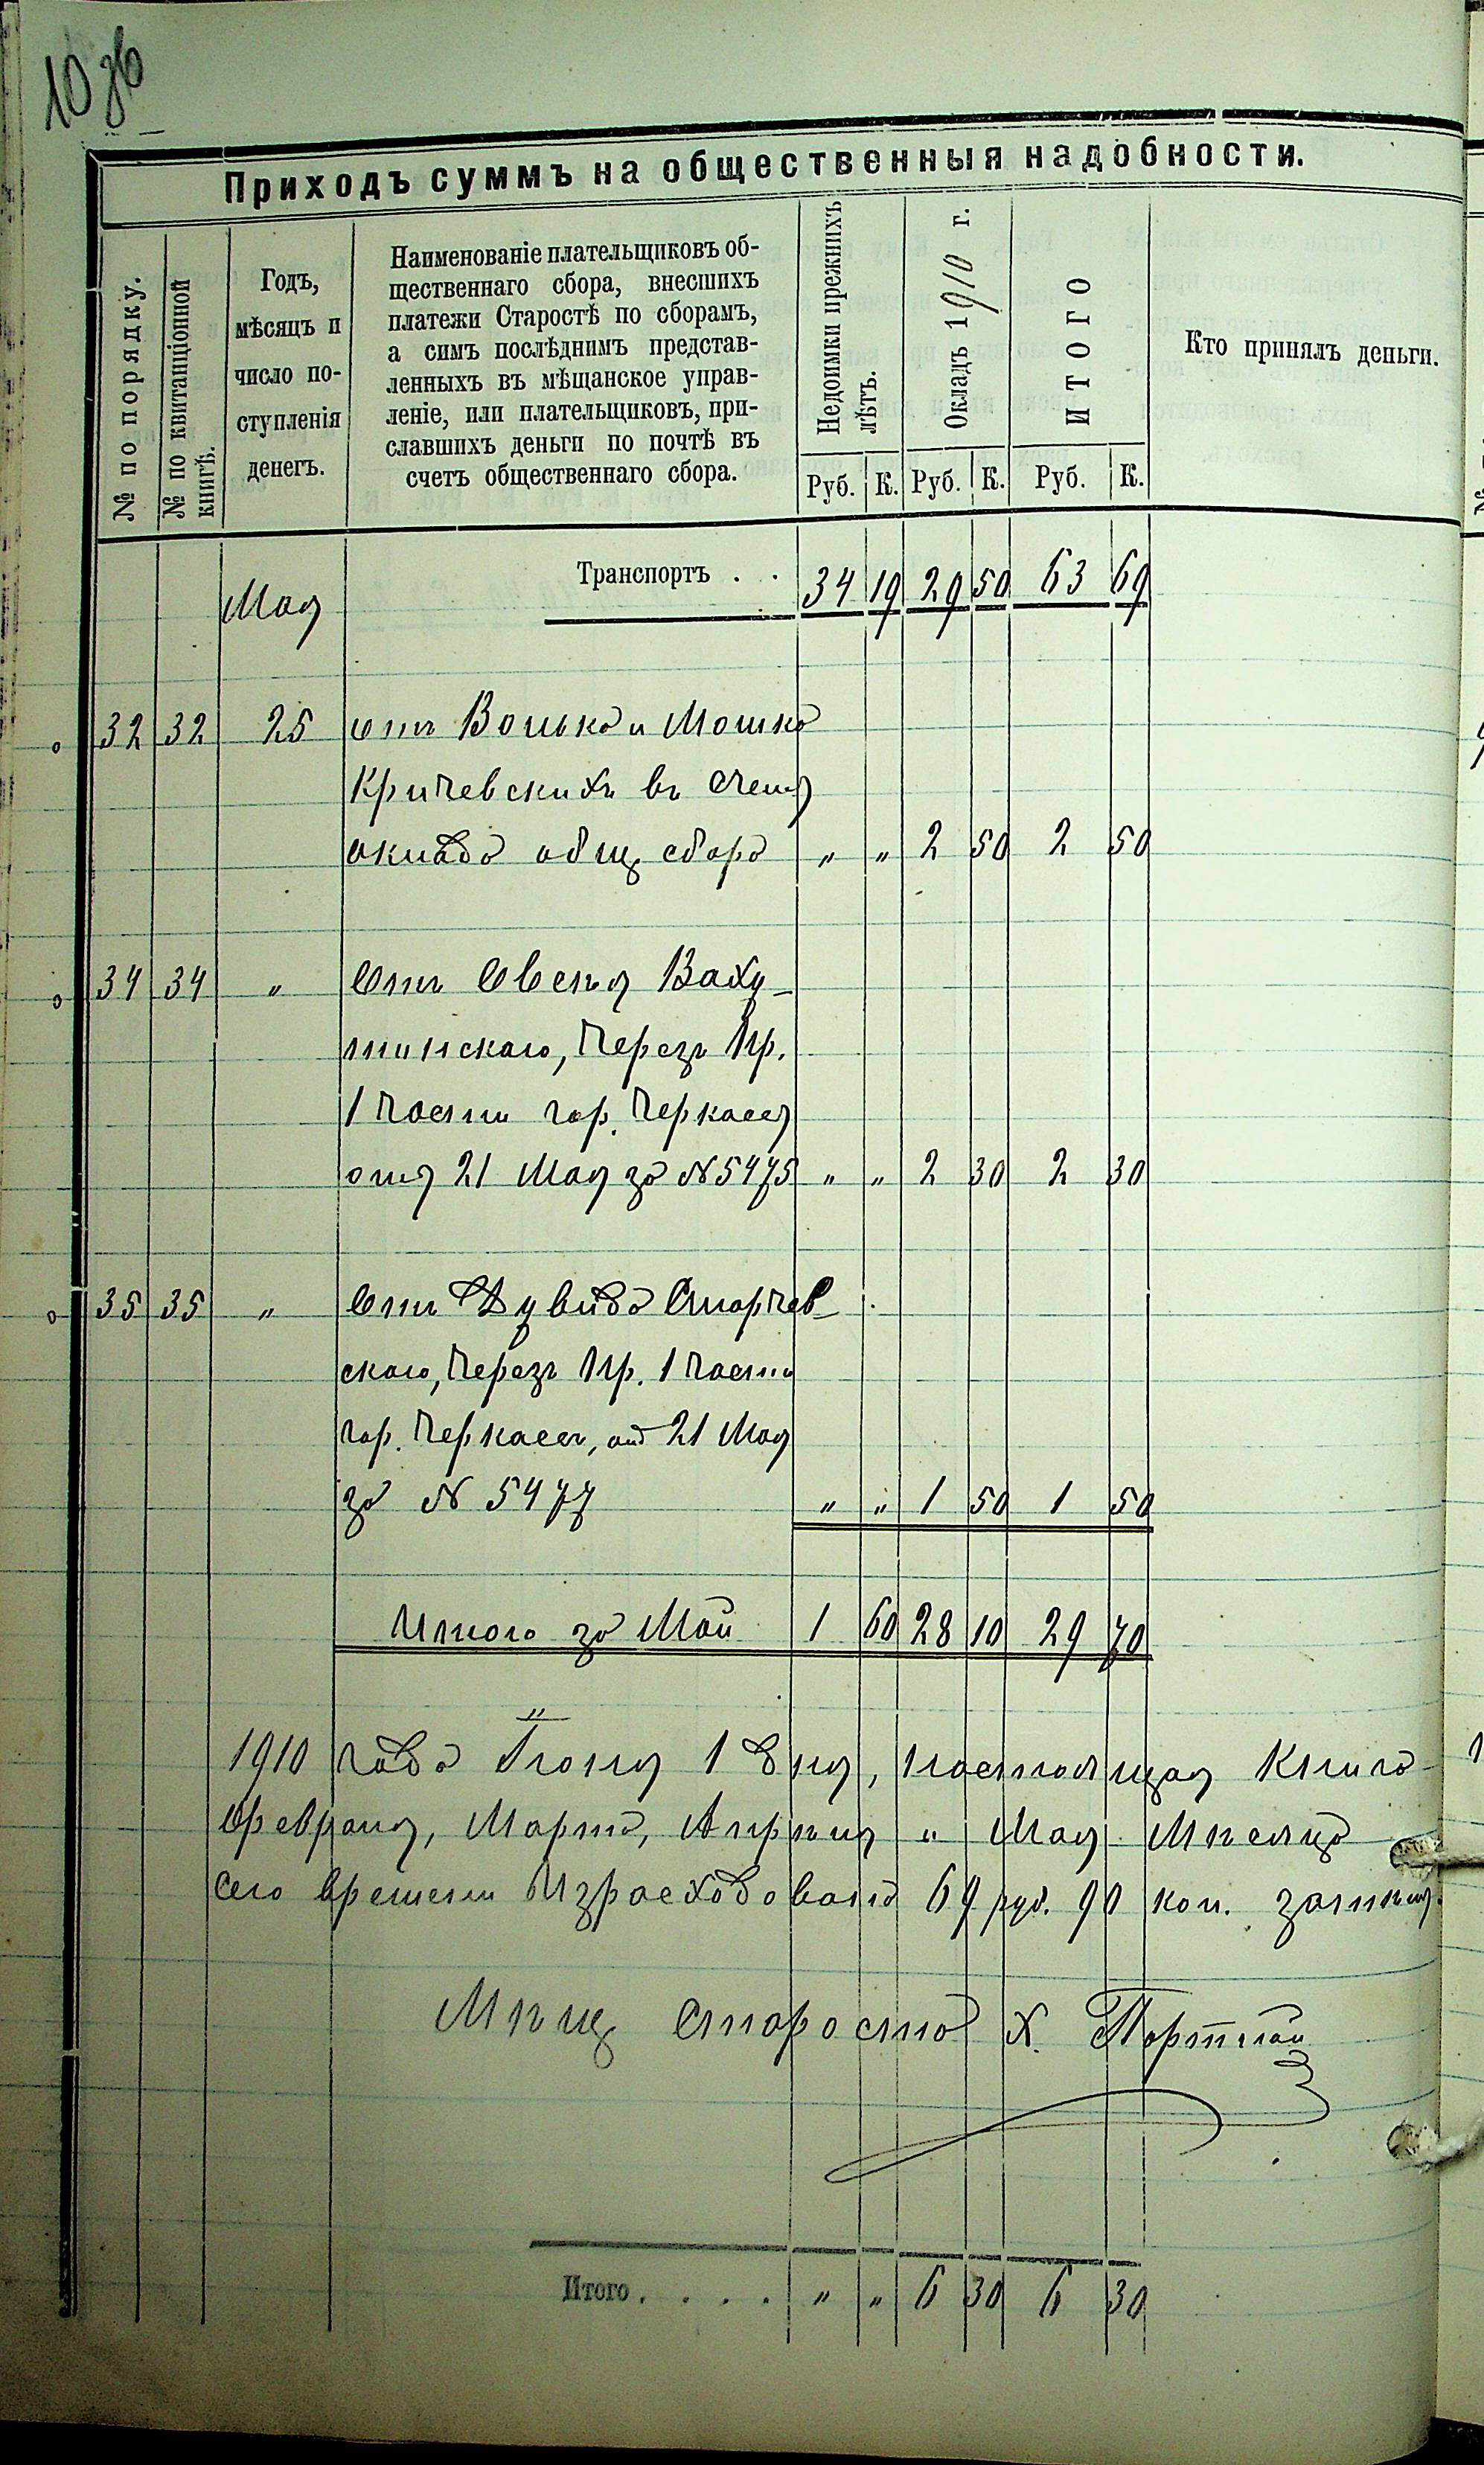 10 об
Приходъ суммъ на общественныя надобности.
№ по порядку.
№ по квитанціонной книгѣ.
Годъ,
мѣсяцъ и
число по-
ступленія
денегъ.
Наименованіе плательщиковъ об-
щественнаго сбора, внесшихъ
платежи Старостѣ по сборамъ,
а симъ послѣднимъ представ-
ленныхъ въ мѣщанское управ-
леніе, или плательщиковъ, при-
славшихъ деньги по почтѣ въ
счетъ общественнаго сбора.
Недоимки прежнихъ
лѣтъ.
Окладъ 1910 г.
ИТОГО
Кто принялъ деньги.
Руб. К. Руб. К. Руб. К.
Мая Транспортъ . . 34 19 29 50 63 69
32 32 25 отъ Волька и Мошка
Кричевскихъ въ счетъ
оклада общ сбора " " 2 50 2 50
34 34 " Отъ Овсея Ваху-
тинскаго, Черезъ Пр.
1 части гор. Черкассъ
отъ 21 Мая за № 5475 " " 2 30 2 30
35 35 " Отъ Дувида Старчев-
скаго, Черезъ Пр. 1 части
гор. Черкассъ, от 21 Мая
за № 5477 " " 1 50 1 50
Итого за Май 1 60 28 10 29 70
1910 года Іюня 1 дня, настоящая Книга
Февраля, Марта, Апрѣля " Мая Мѣсяца
сего времени Израсходовано 69 руб. 90 коп.
Мѣщ староста Х. Портной
Итого. . . . " " 6 30 6 30